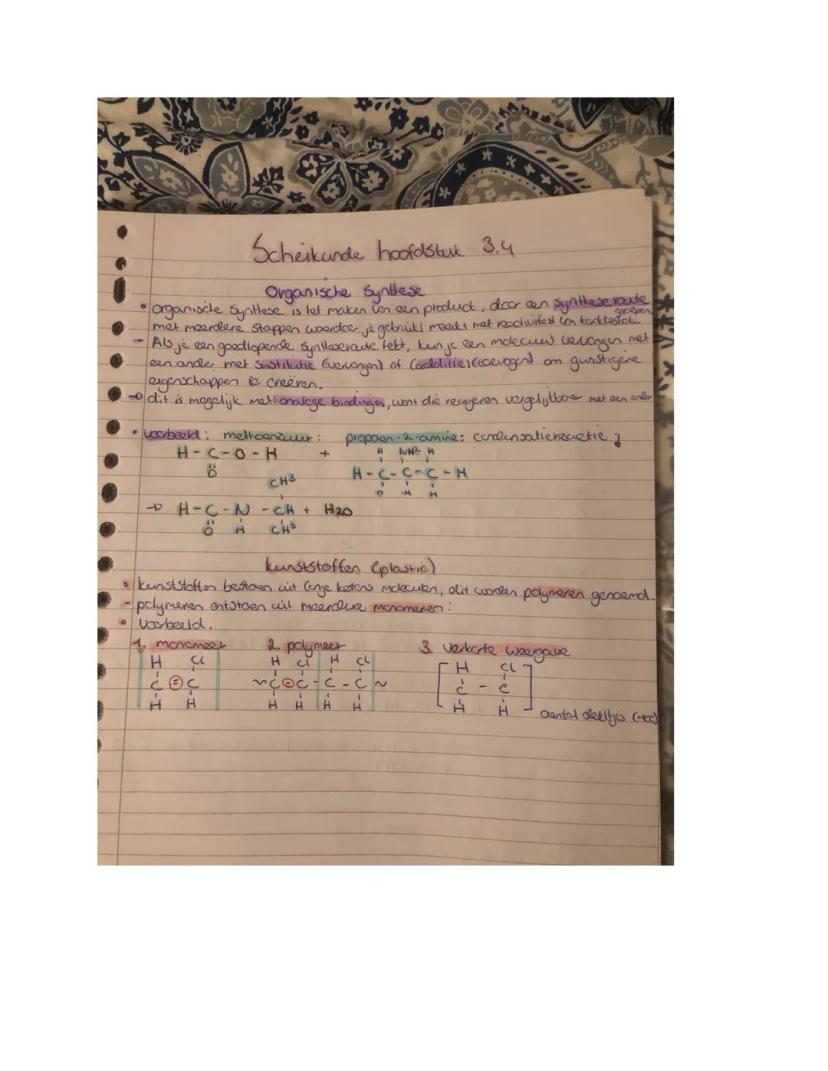 Scheikunde hoofdstuk 3.4
Organische Synthese
• organische Synthese is het maken van een product, door een syntheseroute
met meerdere stappen waardoor je gebruikt maakt met reactiviteit van groepen
- Als je een goedlopende Syntheseroute hebt, kun je een molecuul vervangen met
een ander met Sustitutie (vervangen) of (additie) (toevoegen) om gunstigere
eigenschappen te creëren.
→ dit is mogelijk met analoge bindingen, want die reageren vergelijkbaar met een ander
• voorbeeld: methaanzuur: propaan-2-amine: condensatiereactie
H H NH² H
H - C - O - H + H - C - C - C - H
O H H
CH³
→ H - C - N - CH + H2O
O H CH³
kunststoffen (plastic)
• kunststoffen bestaan uit lange ketens moleculen, dit worden polymeren genoemd.
- polymeren ontstaan uit meerdere monomeren:
• voorbeeld.
1. monomeer 2. polymeer 3. verkorte weergave
H Cl H Cl H Cl H Cl
C = C ~ C - C - C - C ~ C - C
H H H H H H H H
aantal deeltjes